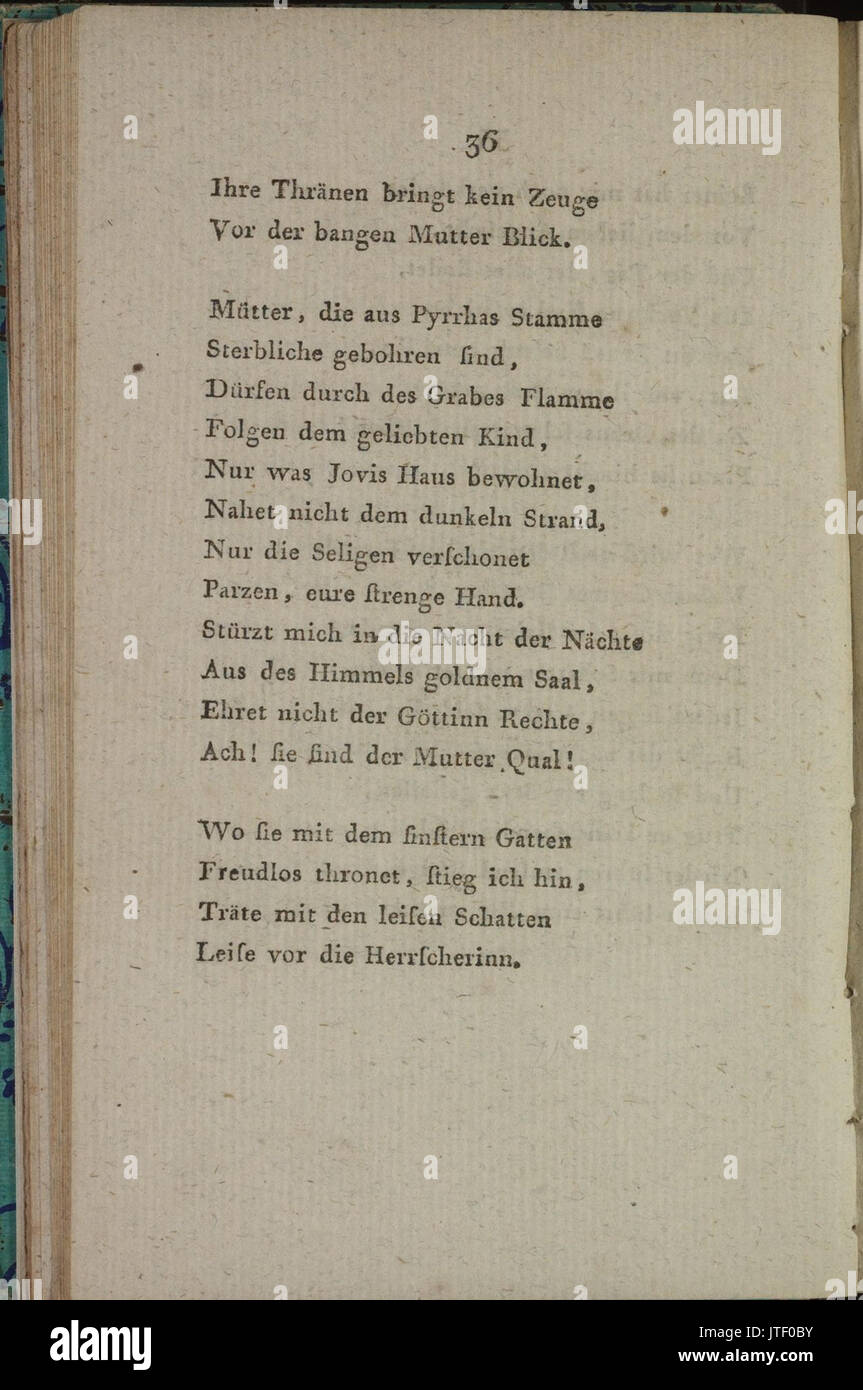 36
Ihre Thränen bringt kein Zeuge
Vor der bangen Mutter Blick.
Mütter, die aus Pyrrhas Stamme
Sterbliche gebohren ſind,
Dürfen durch des Grabes Flamme
Folgen dem geliebten Kind,
Nur was Jovis Haus bewohnet,
Nahet nicht dem dunkeln Strand,
Nur die Seligen verſchonet
Parzen, eure ſtrenge Hand.
Stürzt mich in die Nacht der Nächte
Aus des Himmels goldnem Saal,
Ehret nicht der Göttinn Rechte,
Ach! ſie ſind der Mutter Qual!
Wo ſie mit dem finſtern Gatten
Freudlos thronet, ſtieg ich hin,
Träte mit den leiſen Schatten
Leiſe vor die Herrſcherinn.
alamy
alamy
alamy
alamy
a
a
a
a
a
a
a
a
a
a
a
a
a
a
alamy
Image ID: JTF0BY
www.alamy.com